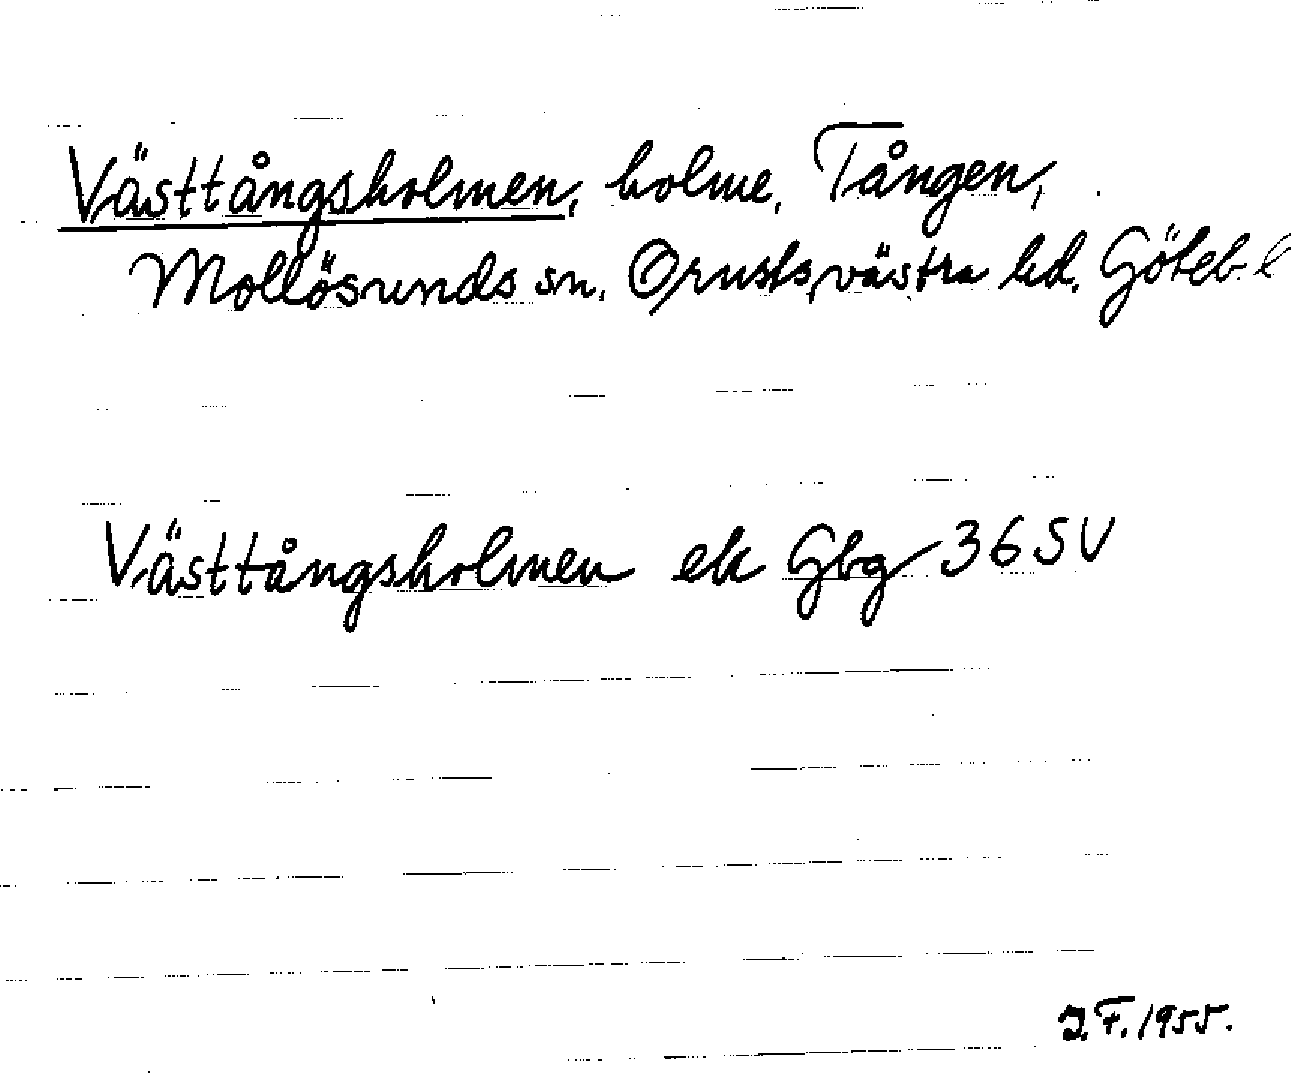 Västtångsholmen, holme, Tången,
Mollösunds sn. Orusts västra hd. Göteb. l
Västtångsholmen ek Gbg 36 SV
J.F. 1955.